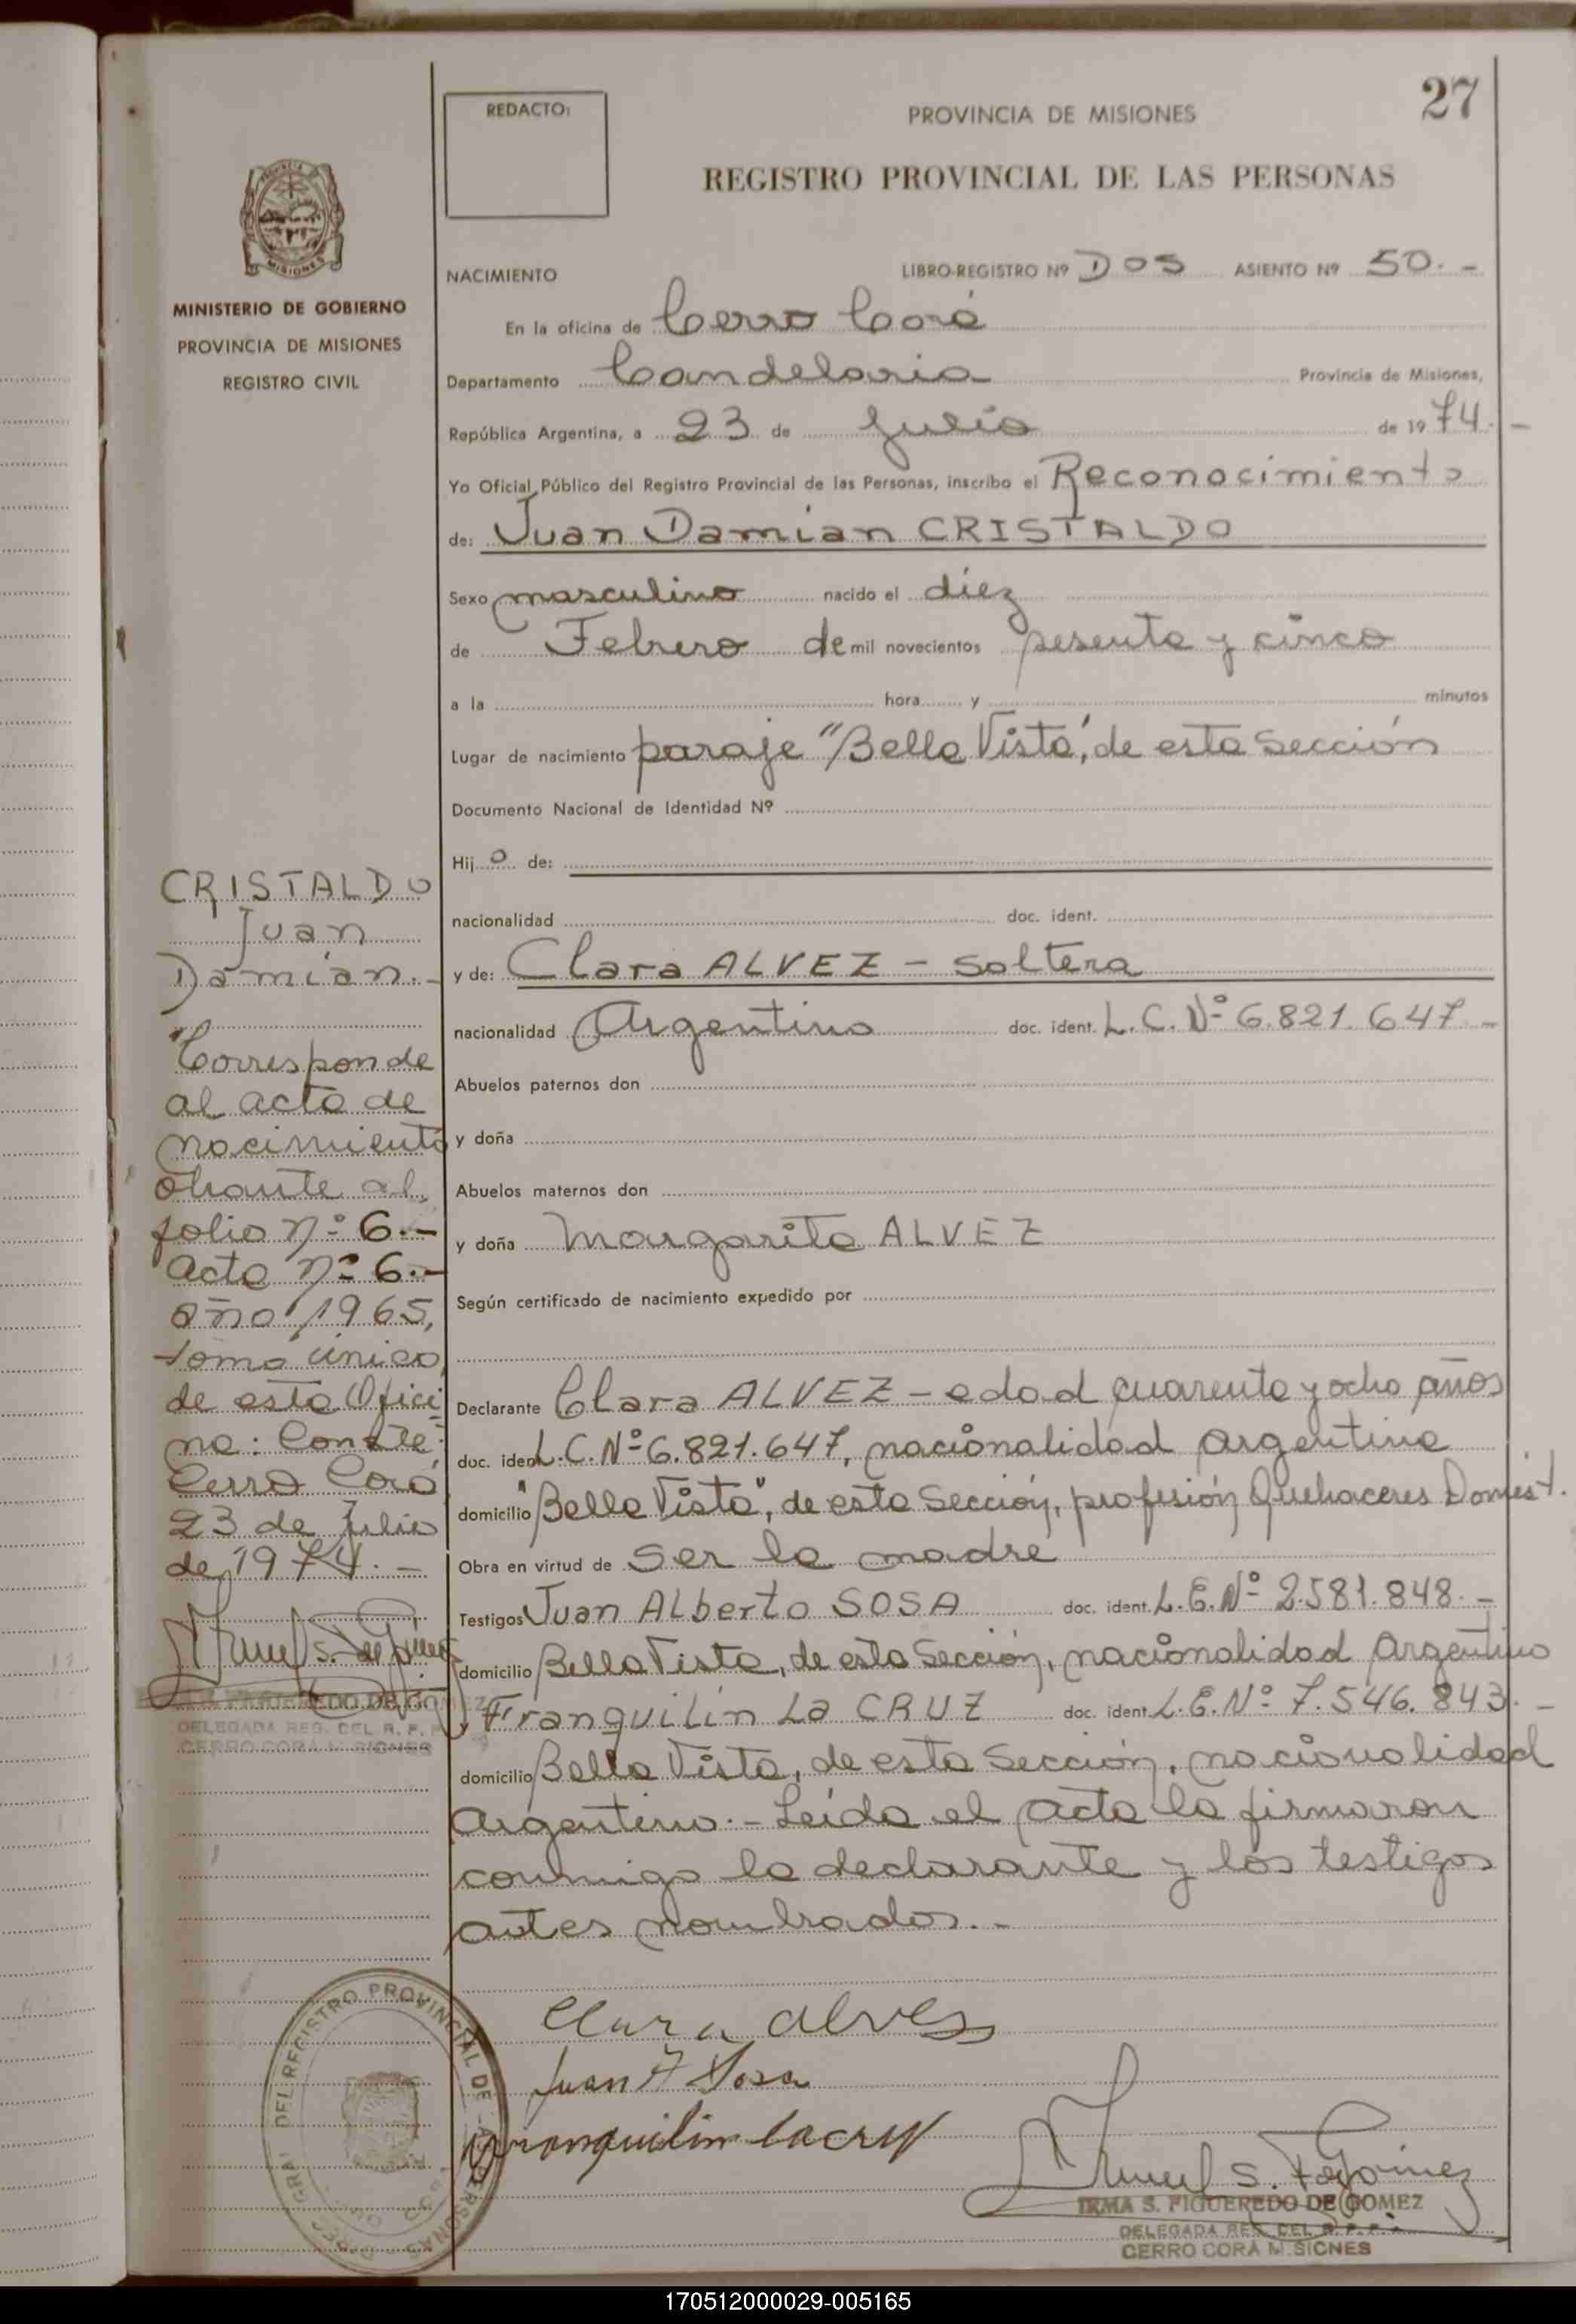 27
REDACTO:
PROVINCIA DE MISIONES
REGISTRO PROVINCIAL DE LAS PERSONAS
MISIONES
MINISTERIO DE GOBIERNO
PROVINCIA DE MISIONES
REGISTRO CIVIL
NACIMIENTO LIBRO-REGISTRO Nº Dos ASIENTO Nº 50.-
En la oficina de Cerro Corá
Departamento Candelaria Provincia de Misiones,
República Argentina, a 23 de Julio de 1974.-
Yo Oficial Público del Registro Provincial de las Personas, inscribo el Reconocimiento
de: Juan Damian CRISTALDO
Sexo masculino nacido el diez
de Febrero de mil novecientos sesenta y cinco
a la hora y minutos
Lugar de nacimiento paraje "Bella Vista", de esta Sección
Documento Nacional de Identidad Nº
Hijo de:
nacionalidad doc. ident.
y de: Clara ALVEZ - soltera
nacionalidad Argentina doc. ident. L.C. Nº 6.821.647.-
Abuelos paternos don
y doña
Abuelos maternos don
y doña Margarita ALVEZ
Según certificado de nacimiento expedido por
Declarante Clara ALVEZ - edad cuarenta y ocho años
doc. ident L.C. Nº 6.821.647, nacionalidad argentina
domicilio "Bella Vista", de esta Sección, profesión Quehaceres Domést.
Obra en virtud de ser la madre
Testigos Juan Alberto SOSA doc. ident. L.E. Nº 2.581.848.-
domicilio Bella Vista, de esta Sección, nacionalidad Argentino
y Franquilín La CRUZ doc. ident. L.E. Nº 7.546.843.-
domicilio Bella Vista, de esta Sección, nacionalidad
Argentino.- Leída el acta la firmaron
conmigo la declarante y los testigos
antes nombrados.-
CRISTALDO
Juan
Damian.-
"Corresponde
al acta de
nacimiento
obrante al
folio nº 6.-
Acta nº 6.-
año 1965,
tomo único,
de esta Ofici
na: Conste:
Cerro Corá
23 de Julio
de 1974.-
DELEGADA REG. DEL R. P. P.
CERRO CORA MISIONES
Clara alves
Juan A Sosa
Franquilin lacruz
IRMA S. FIGUEREDO DE GOMEZ
DELEGADA REG. DEL R. P. P.
CERRO CORA MISIONES
DEL REGISTRO PROVINCIAL DE LAS PERSONAS
170512000029-005165